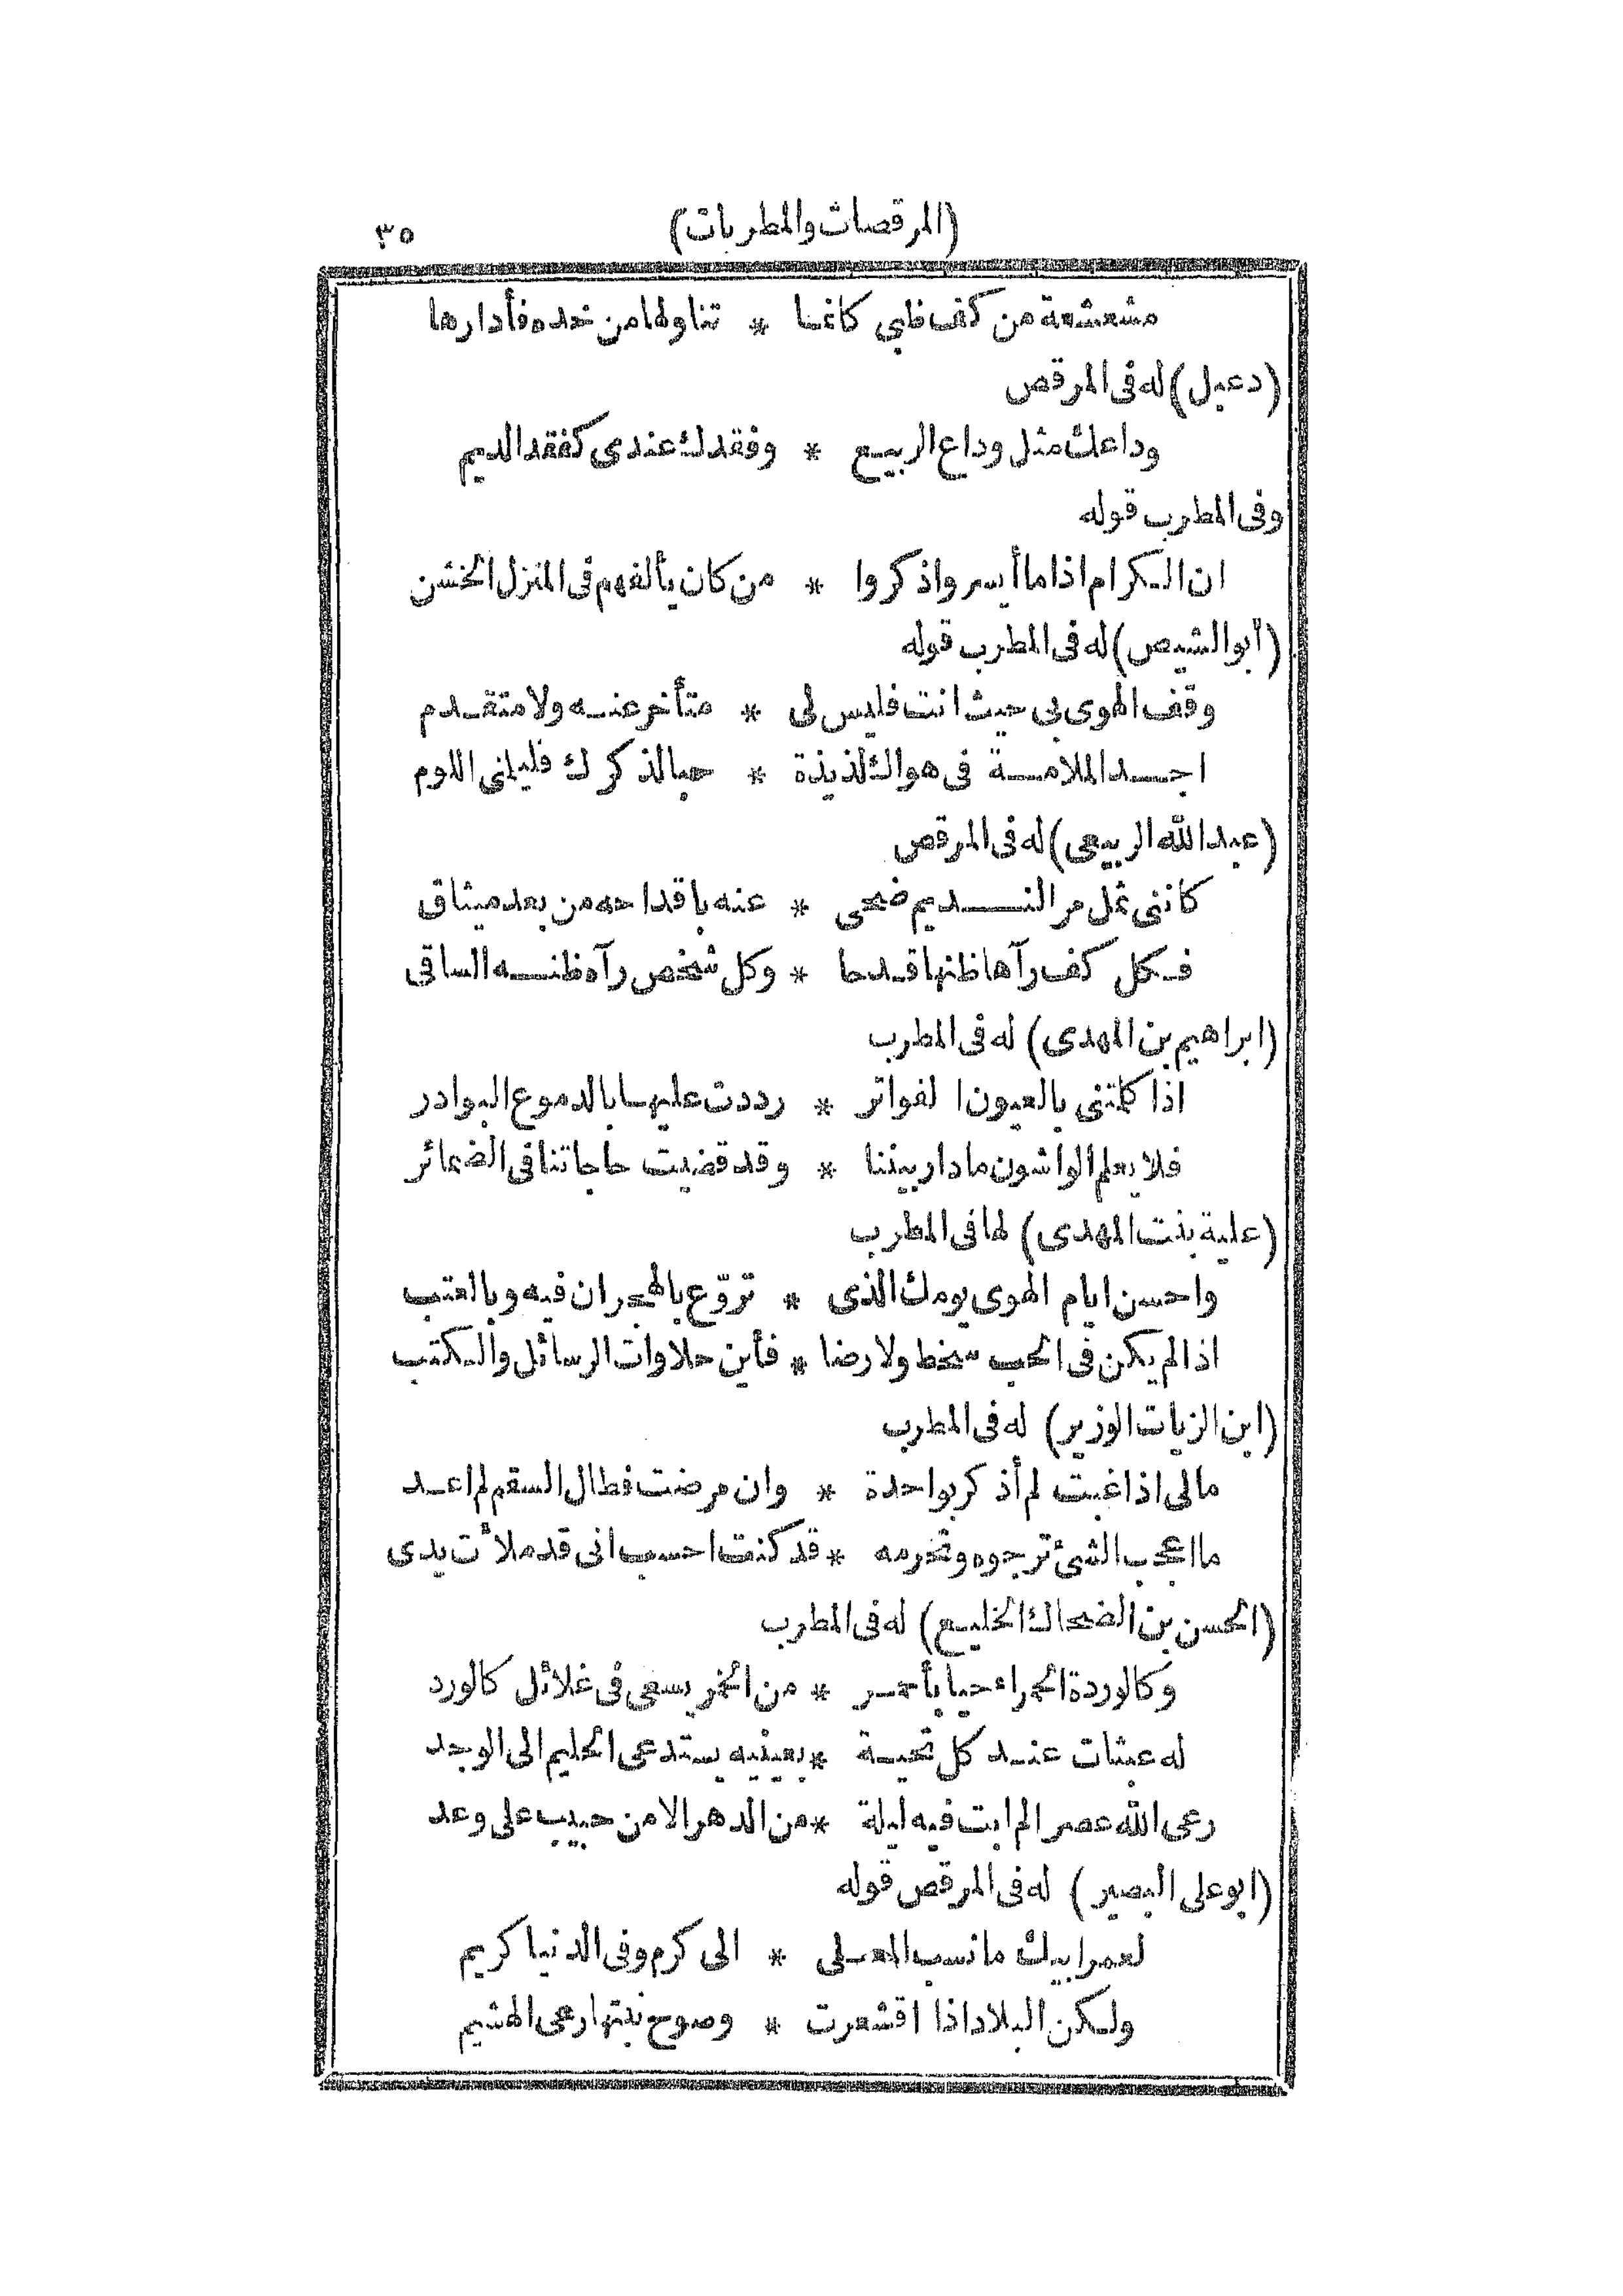 (المرقصات والمطربات) ٣٥
مشعشعة من كف ظبي كانما * تناولها من خده فأدارها
(دعبل) له فى المرقص
وداعك مثل وداع الربيع * وفقدك عندى كفقد الديم
وفى المطرب قوله
ان الكرام اذا ما أيسروا ذكروا * من كان يألفهم فى المنزل الخشن
(أبو الشيص) له فى المطرب قوله
وقف الهوى بى حيث انت فليس لى * متأخر عنه ولا متقدم
اجد الملامة فى هواك لذيذة * حبا لذكرك فليلمنى اللوم
(عبد الله الربيعى) له فى المرقص
كاننى ثمل مر النديم ضحى * عنه باقداحه من بعد ميثاق
فكل كف رآها ظنها قدحا * وكل شخص رآه ظنه الساقى
(ابراهيم بن المهدى) له فى المطرب
اذا كلتنى بالعيون الفواتر * رددت عليها بالدموع البوادر
فلا يعلم الواشون ما دار بيننا * وقد قضيت حاجاتنا فى الضمائر
(علية بنت المهدى) لها فى المطرب
واحسن ايام الهوى يومك الذى * تروّع بالهجران فيه وبالعتب
اذا لم يكن فى الحب سخط ولا رضا * فأين حلاوات الرسائل والكتب
(ابن الزيات الوزير) له فى المطرب
مالى اذا غبت لم أذكر بواحدة * وان مرضت فطال السقم لم اعد
ما اعجب الشئ ترجوه وتحرمه * قد كنت احسب انى قد ملأت يدى
(الحسن بن الضحاك الخليع) له فى المطرب
وكالوردة الحمراء حيا بأحمر * من الخمر يسعى فى غلائل كالورد
له عبثات عند كل تحية * بعينيه يستدعى الحليم الى الوجد
رعى الله عصرا لم ابت فيه ليلة * من الدهر الا من حبيب على وعد
(ابو على البصير) له فى المرقص قوله
لعمر ابيك ما نسب المعلى * الى كرم وفى الدنيا كريم
ولكن البلاد اذا اقشعرت * وصوح نبتها رعى الهشيم